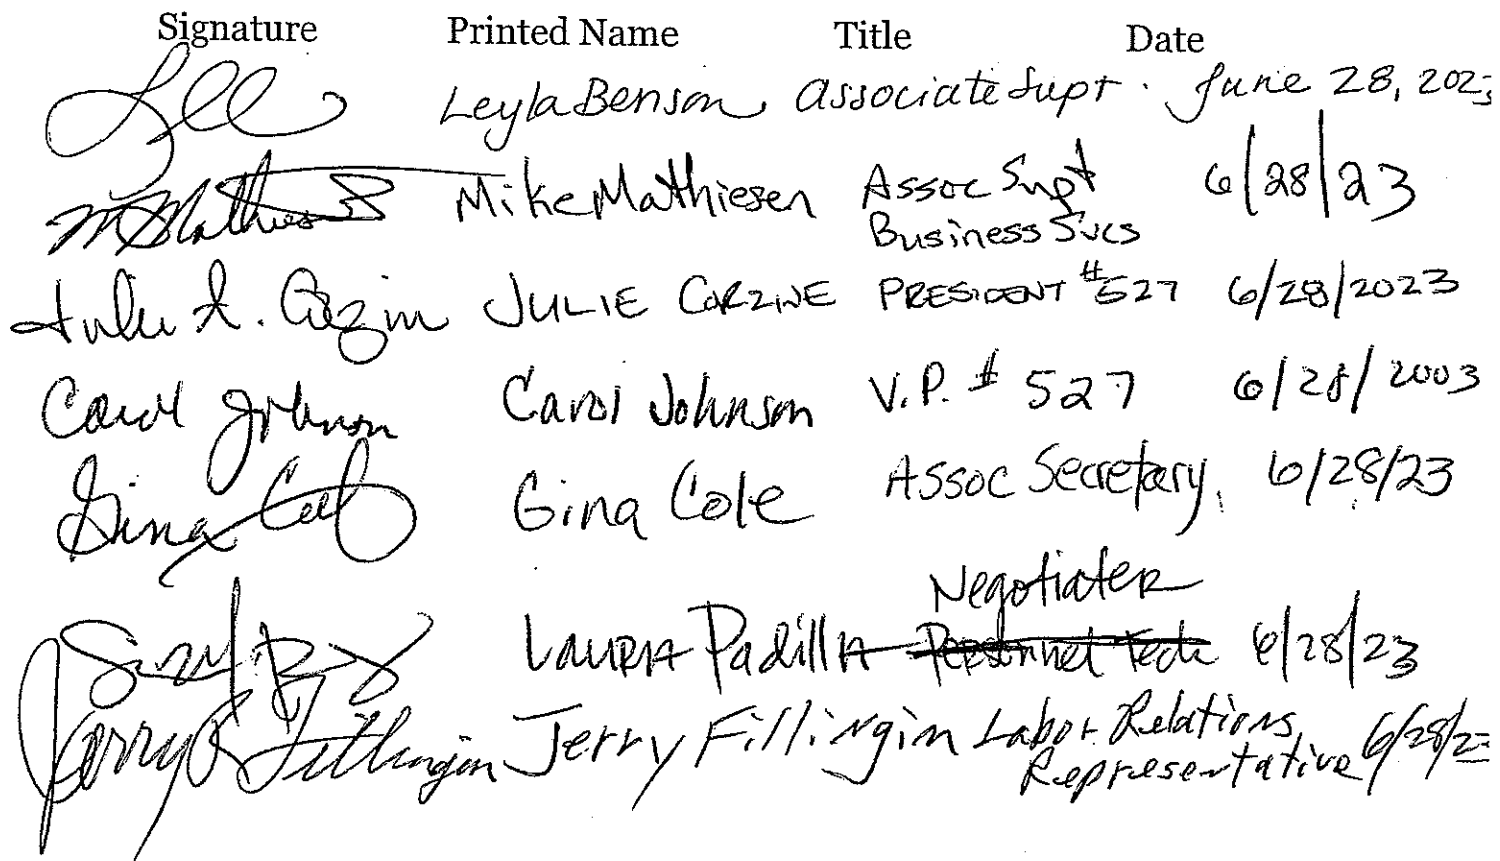 Signature Printed Name Title Date
Leyla Benson Associate Supt. June 28, 202
M Mathiesen Mike Mathiesen Assoc Supt 6/28/23
Business Svcs
Julie A. Corzine JULIE CORZINE PRESIDENT #527 6/28/2023
Carol Johnson Carol Johnson V.P. # 527 6/28/2003
Gina Cole Gina Cole Assoc Secretary 6/28/23
Negotiater
LAURA Padilla Personnel Tech 6/28/23
Jerry Fillingin Jerry Fillingin Labor Relations 6/28/2
Representative